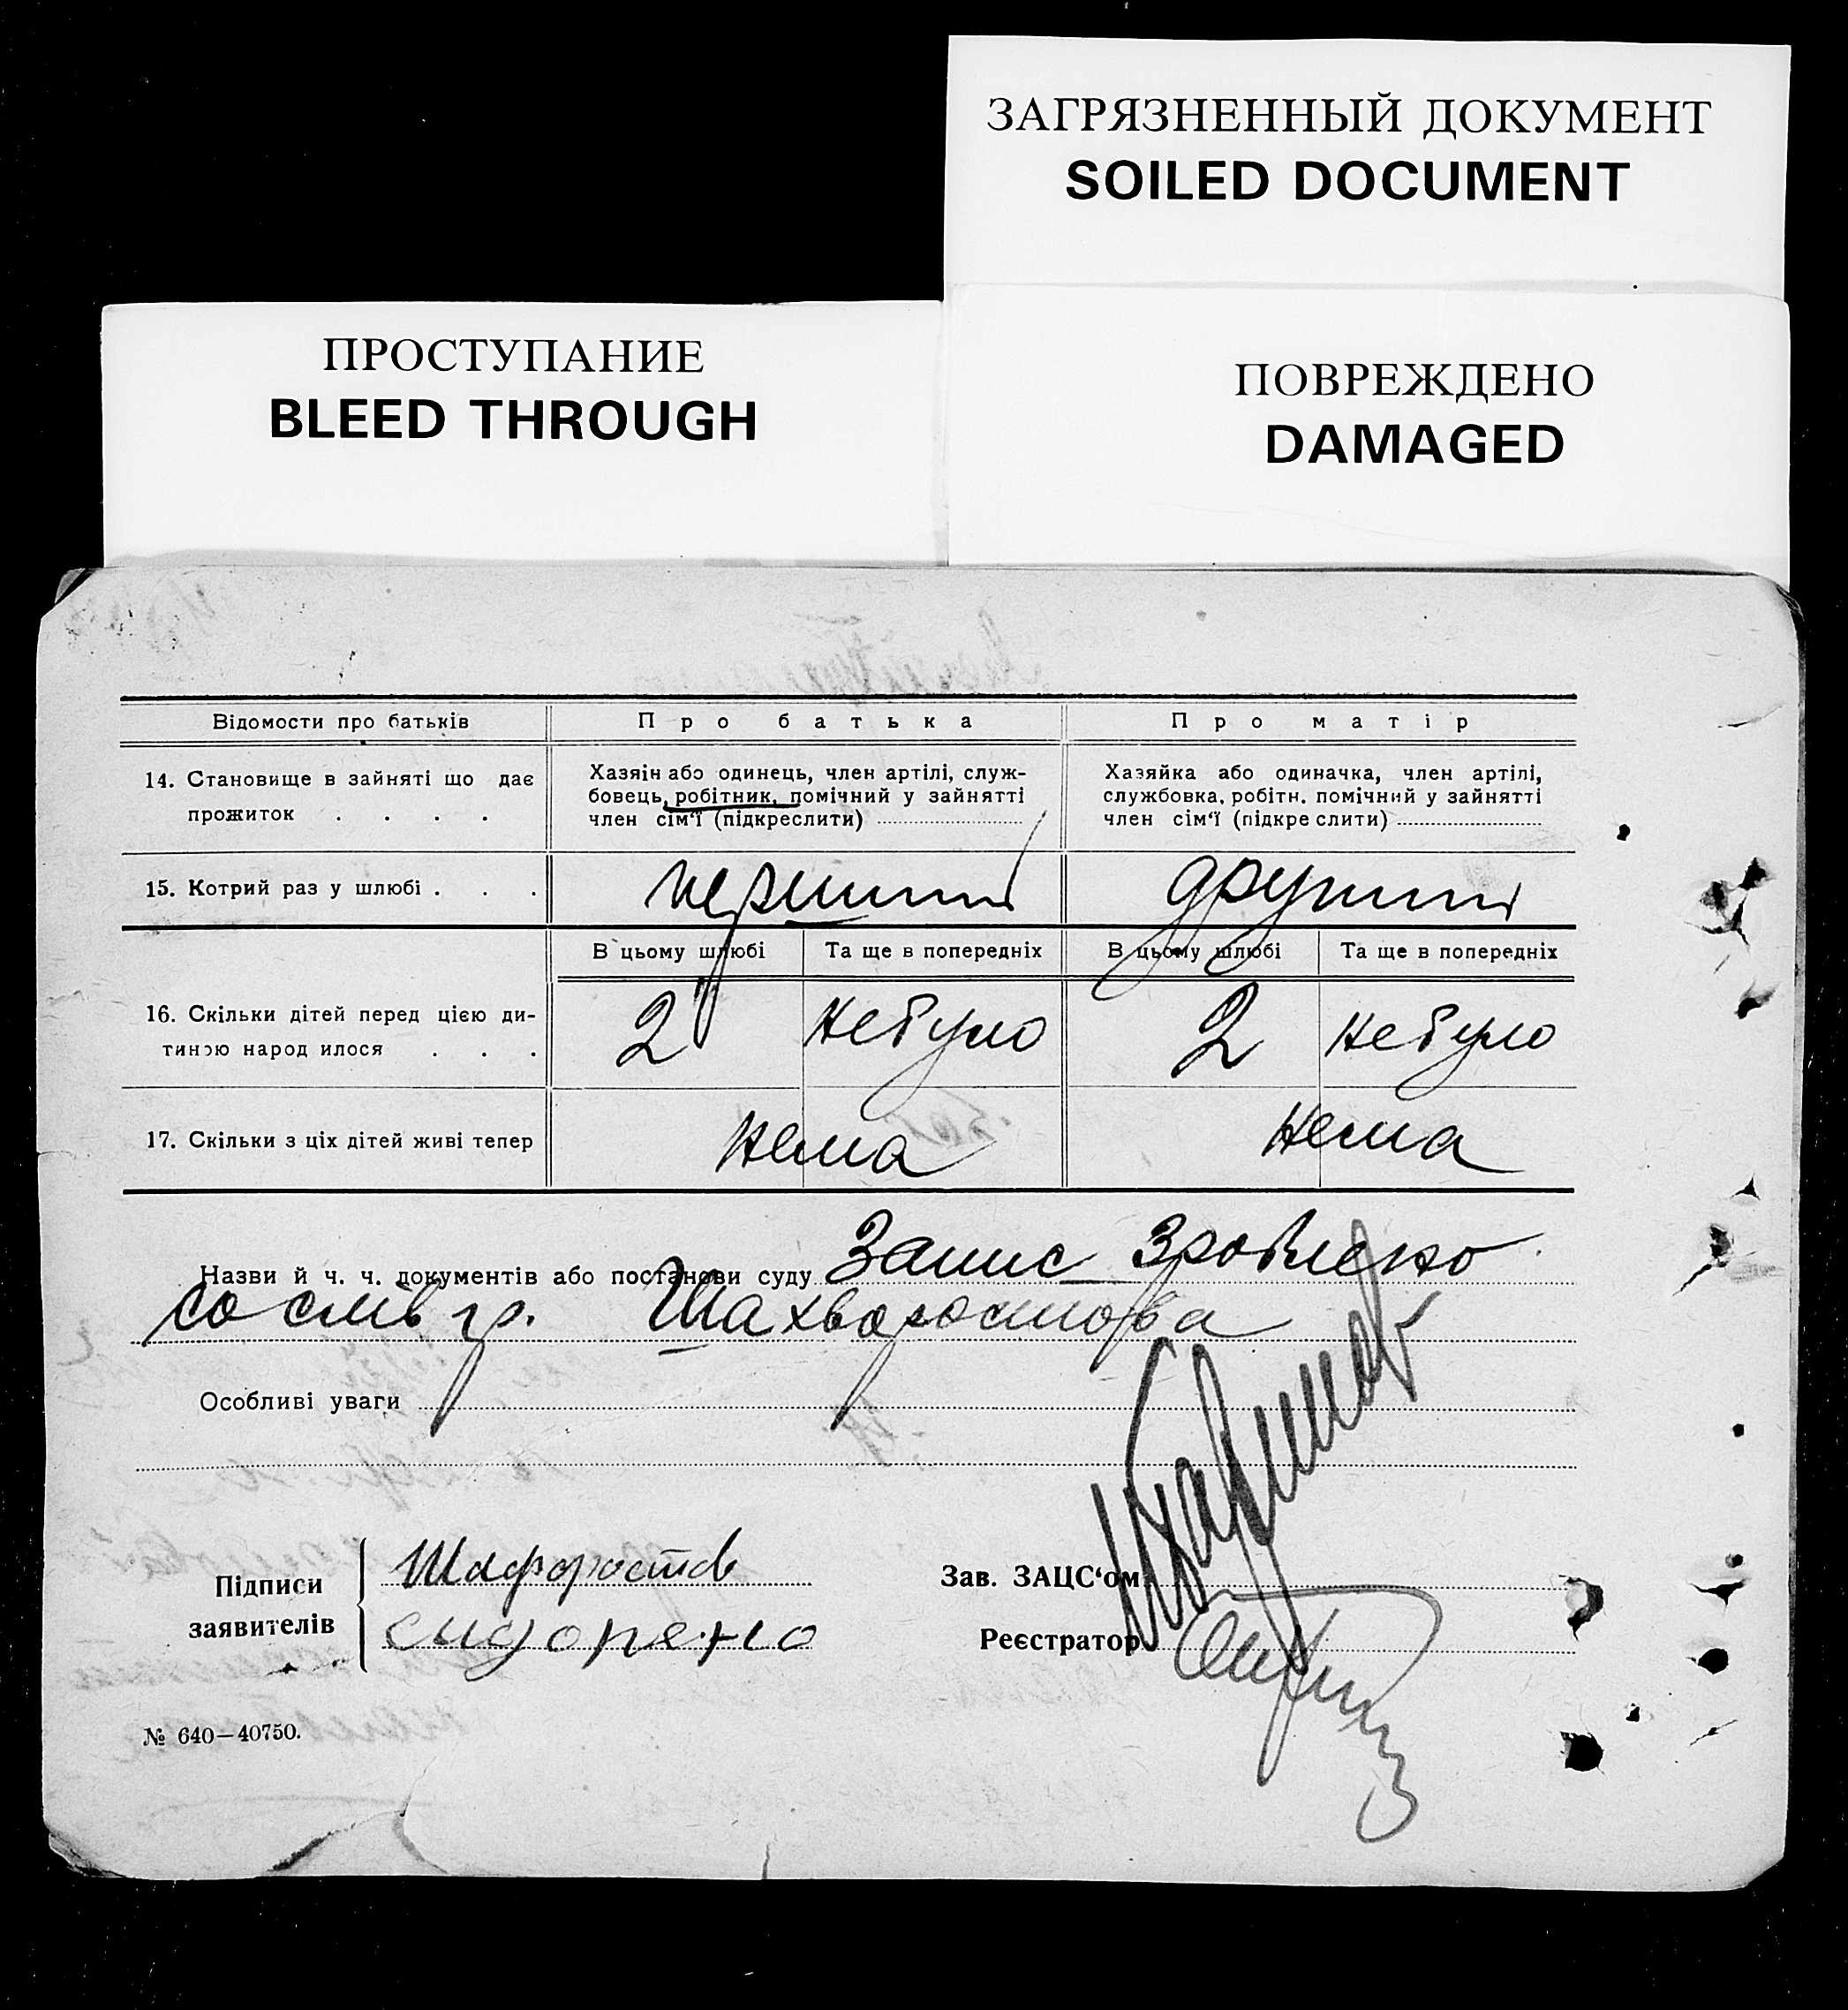 ЗАГРЯЗНЕННЫЙ ДОКУМЕНТ
SOILED DOCUMENT
ПРОСТУПАНИЕ
BLEED THROUGH
ПОВРЕЖДЕНО
DAMAGED
Відомости про батьків Про батька Про матір
14. Становище в зайняті що дає прожиток . . . .
Хазяін або одинець, член артілі, служ-
бовець, робітник, помічний у зайнятті
член сім'ї (підкреслити)
Хазяйка або одиначка, член артілі,
службовка, робітн. помічний у зайнятті
член сім'ї (підкреслити)
15. Котрий раз у шлюбі . . . перший другий
В цьому шлюбі Та ще в попередніх В цьому шлюбі Та ще в попередніх
16. Скільки дітей перед цією ди-
тиною народилося . . . 2 небуло 2 небуло
17. Скільки з ціх дітей живі тепер нема нема
Назви й ч. ч. документів або постанови суду Запис зроблено
со слів гр. Шахворостова
Особливі уваги
Підписи
заявителів
Шафоростов
Сидорено
Зав. ЗАЦС'ом
Реєстратор
№ 640—40750.